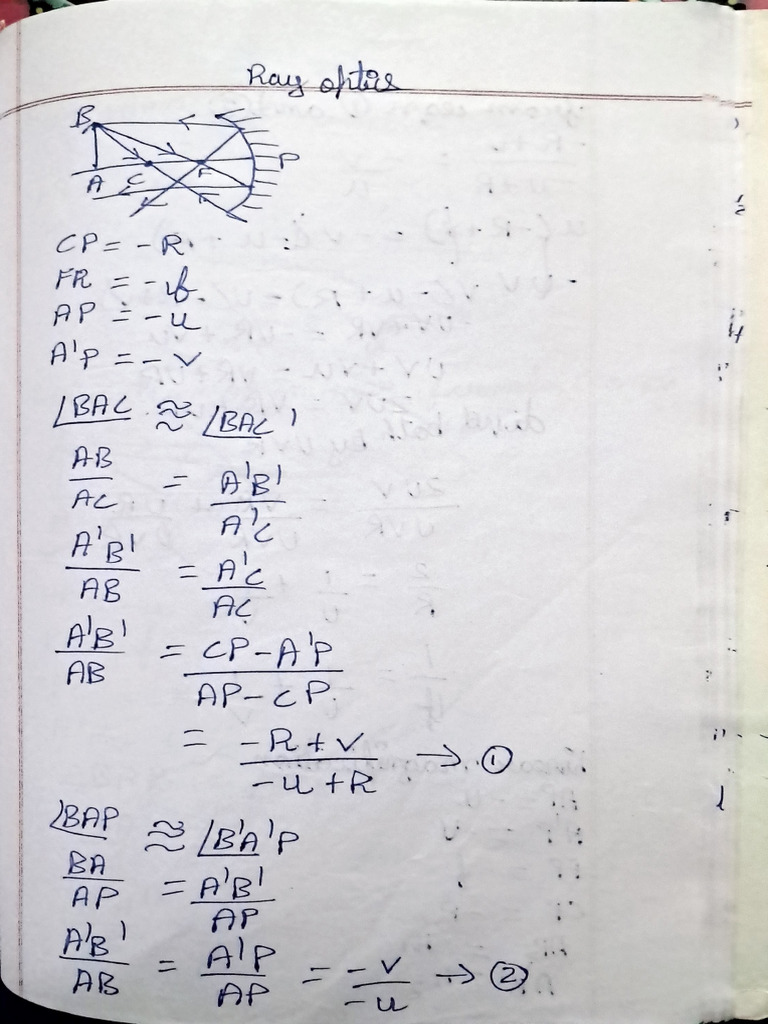 Ray optics
B
A C F P
CP = -R
FR = -f
AP = -u
A'P = -v
∠BAC ≈ ∠BAC'
AB/AC = A'B'/A'C
A'B'/AB = A'C/AC
A'B'/AB = CP-A'P/AP-CP
= -R+v/-u+R → ①
∠BAP ≈ ∠B'A'P
BA/AP = A'B'/AP
A'B'/AB = A'P/AP = -v/-u → ②